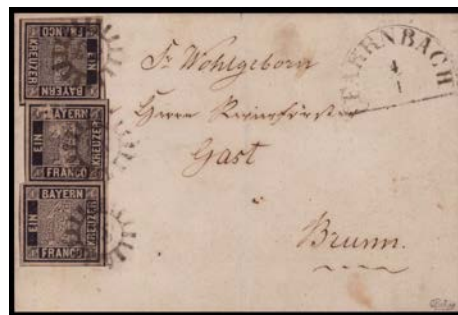 BAYERN
EIN
KREUZER
FRANCO
BAYERN
EIN
KREUZER
FRANCO
BAYERN
EIN
KREUZER
FRANCO
FARRNBACH
4
1
Sr Wohlgeborn
Herrn Revierförster
Gast
Brunn.